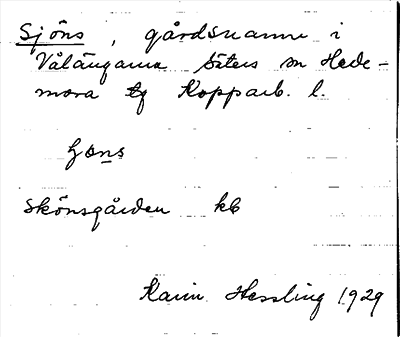 Sjöns, gårdsnamn i
Vålängarna Säters sn Hede-
mora tg Kopparb. l.
ʃons
Skönsgården kb
Karin Hessling 1929